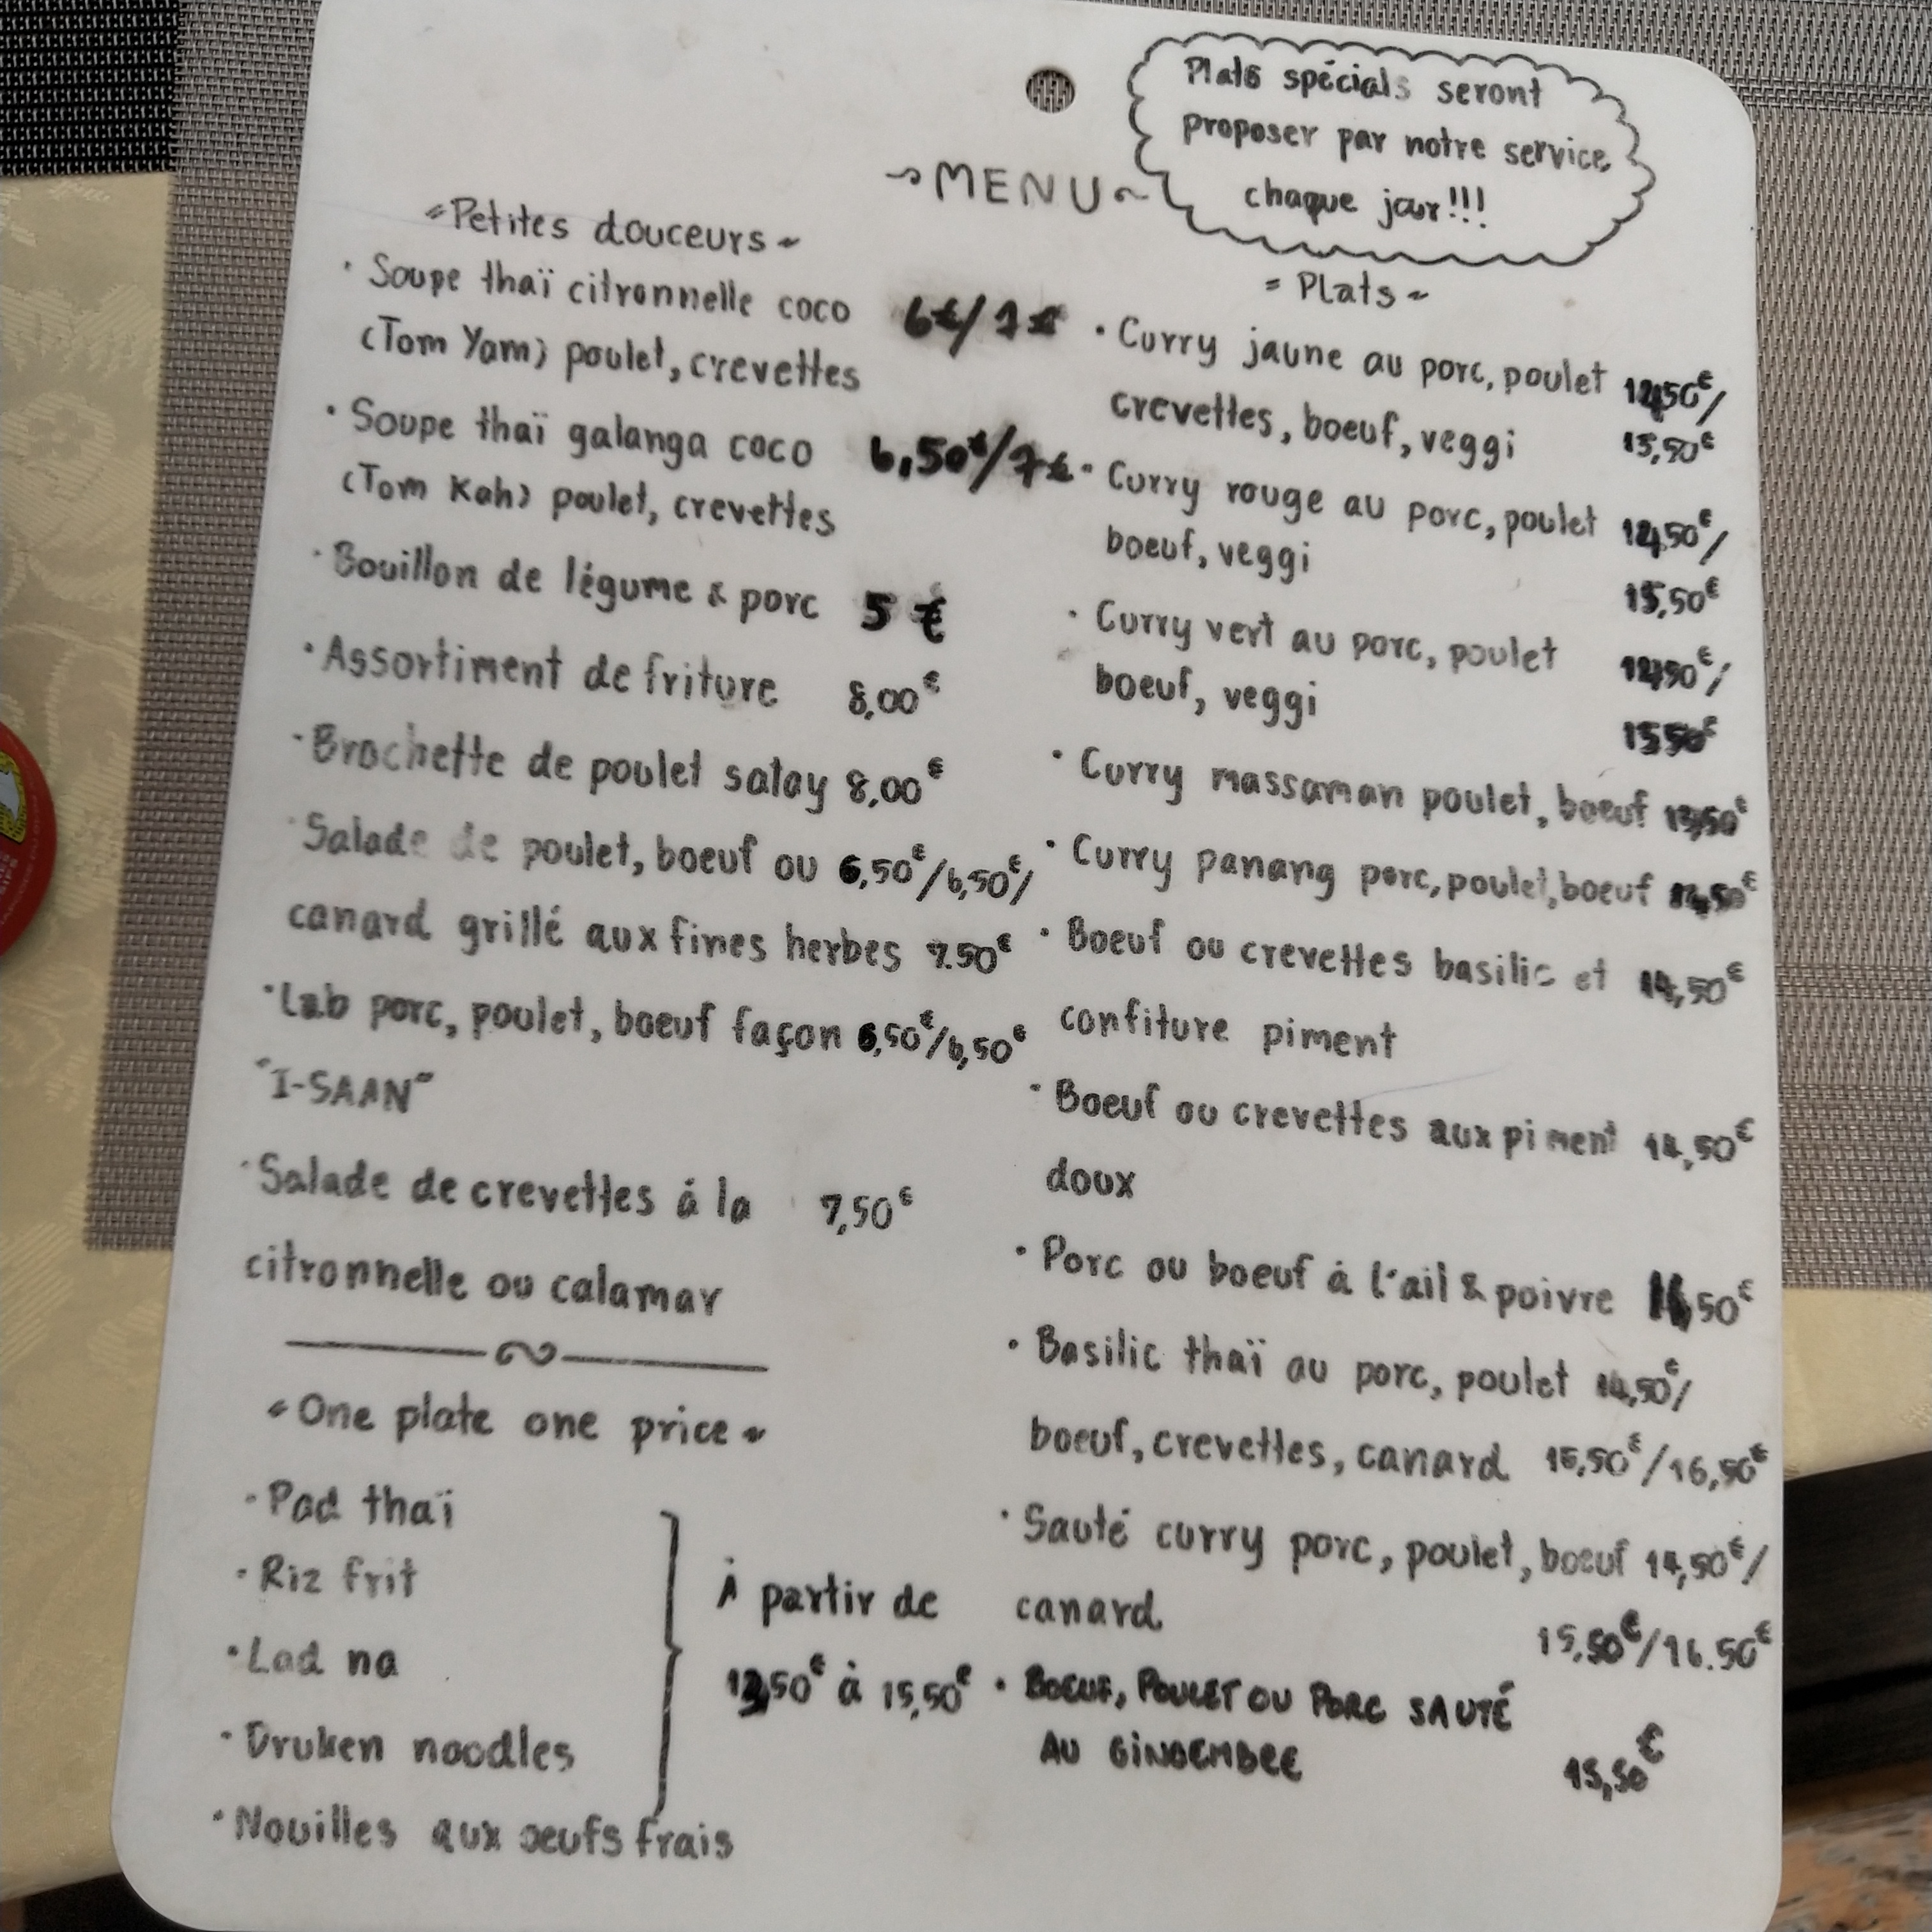 Plats spécials seront
proposer par notre service
chaque jour!!!
~MENU~
~Petites douceurs~
· Soupe thaï citronnelle coco 6€/7€
(Tom Yam) poulet, crevettes
· Soupe thaï galanga coco 6,50€/7€
(Tom Kah) poulet, crevettes
· Bouillon de légume & porc 5 €
· Assortiment de friture 8,00€
· Brochette de poulet satay 8,00€
· Salade de poulet, boeuf ou 6,50€/6,50€/
canard grillé aux fines herbes 7.50€
· Lab porc, poulet, boeuf façon 6,50€/6,50€
"I-SAAN"
· Salade de crevettes à la 7,50€
citronnelle ou calamar
~One plate one price~
· Pad thaï
· Riz frit
· Lad na
· Druken noodles
· Nouilles aux oeufs frais
À partir de
à 15,50€
~Plats~
· Curry jaune au porc, poulet
crevettes, boeuf, veggi 15,50€
· Curry rouge au porc, poulet
boeuf, veggi
15,50€
· Curry vert au porc, poulet
boeuf, veggi
15,50€
· Curry massaman poulet, boeuf
· Curry panang porc, poulet, boeuf
· Boeuf ou crevettes basilic et 14,50€
confiture piment
· Boeuf ou crevettes aux piment 14,50€
doux
· Porc ou boeuf à l'ail & poivre
· Basilic thaï au porc, poulet 14,50€/
boeuf, crevettes, canard 15,50€/16,50€
· Sauté curry porc, poulet, boeuf 14,50€/
canard
15,50€/16.50€
· BOEUF, POULET OU PORC SAUTÉ
AU GINGEMBRE
15,50€